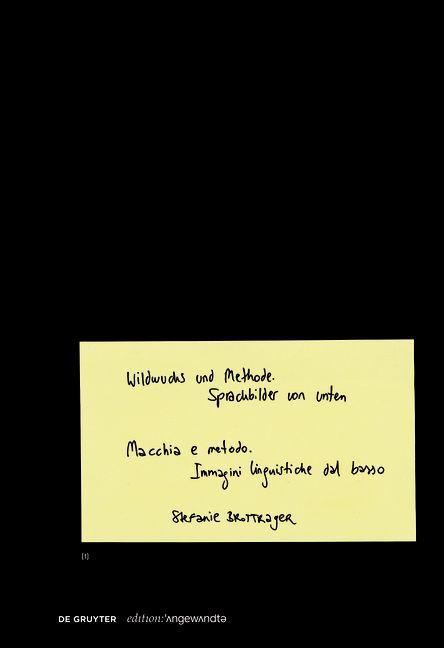 Wildwuchs und Methode.
Sprachbilder von unten
Macchia e metodo.
Immagini linguistiche dal basso
Stefanie BROTTRAGER
[1]
DE GRUYTER edition:'ʌngewʌndtə